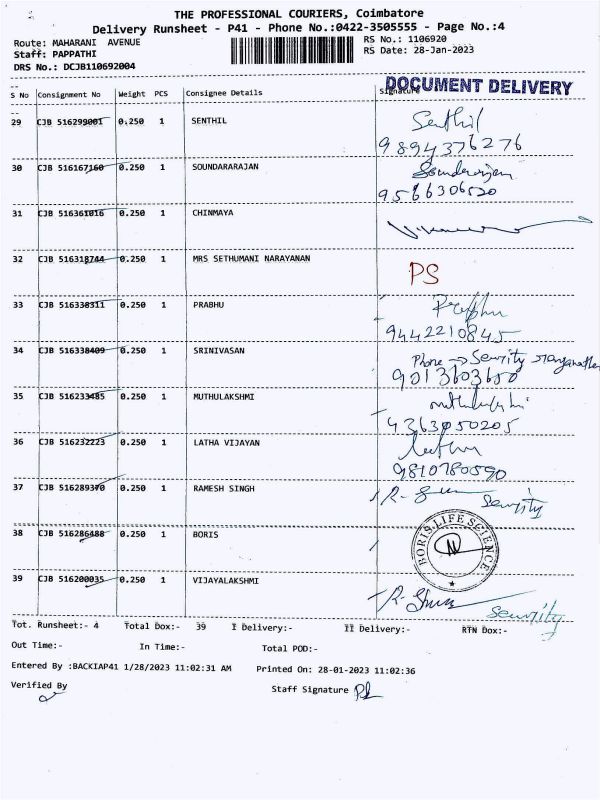 THE PROFESSIONAL COURIERS, Coimbatore
Delivery Runsheet - P41 - Phone No.:0422-3505555 - Page No.:4
Route: MAHARANI AVENUE RS No.: 1106920
Staff: PAPPATHI RS Date: 28-Jan-2023
DRS No.: DCJB110692004
DOCUMENT DELIVERY
S No Consignment No Weight PCS Consignee Details Signature
29 CJB 516299001 0.250 1 SENTHIL Senthil
9894376276
30 CJB 516167160 0.250 1 SOUNDARARAJAN Soundararajan
9566306520
31 CJB 516361016 0.250 1 CHINMAYA
32 CJB 516318744 0.250 1 MRS SETHUMANI NARAYANAN PS
33 CJB 516338311 0.250 1 PRABHU Prabhu
9442210845
34 CJB 516338409 0.250 1 SRINIVASAN Phone → Security
9013603680
35 CJB 516233485 0.250 1 MUTHULAKSHMI muthulakshmi
4363050205
36 CJB 516232223 0.250 1 LATHA VIJAYAN Latha
9810780590
37 CJB 516289370 0.250 1 RAMESH SINGH R. Security
38 CJB 516286488 0.250 1 BORIS BORIS LIFE SCIENCE
39 CJB 516200035 0.250 1 VIJAYALAKSHMI R. Security
Tot. Runsheet:- 4 Total Dox:- 39 I Delivery:- II Delivery:- RTN Dox:-
Out Time:- In Time:- Total POD:-
Entered By :BACKIAP41 1/28/2023 11:02:31 AM Printed On: 28-01-2023 11:02:36
Verified By Staff Signature